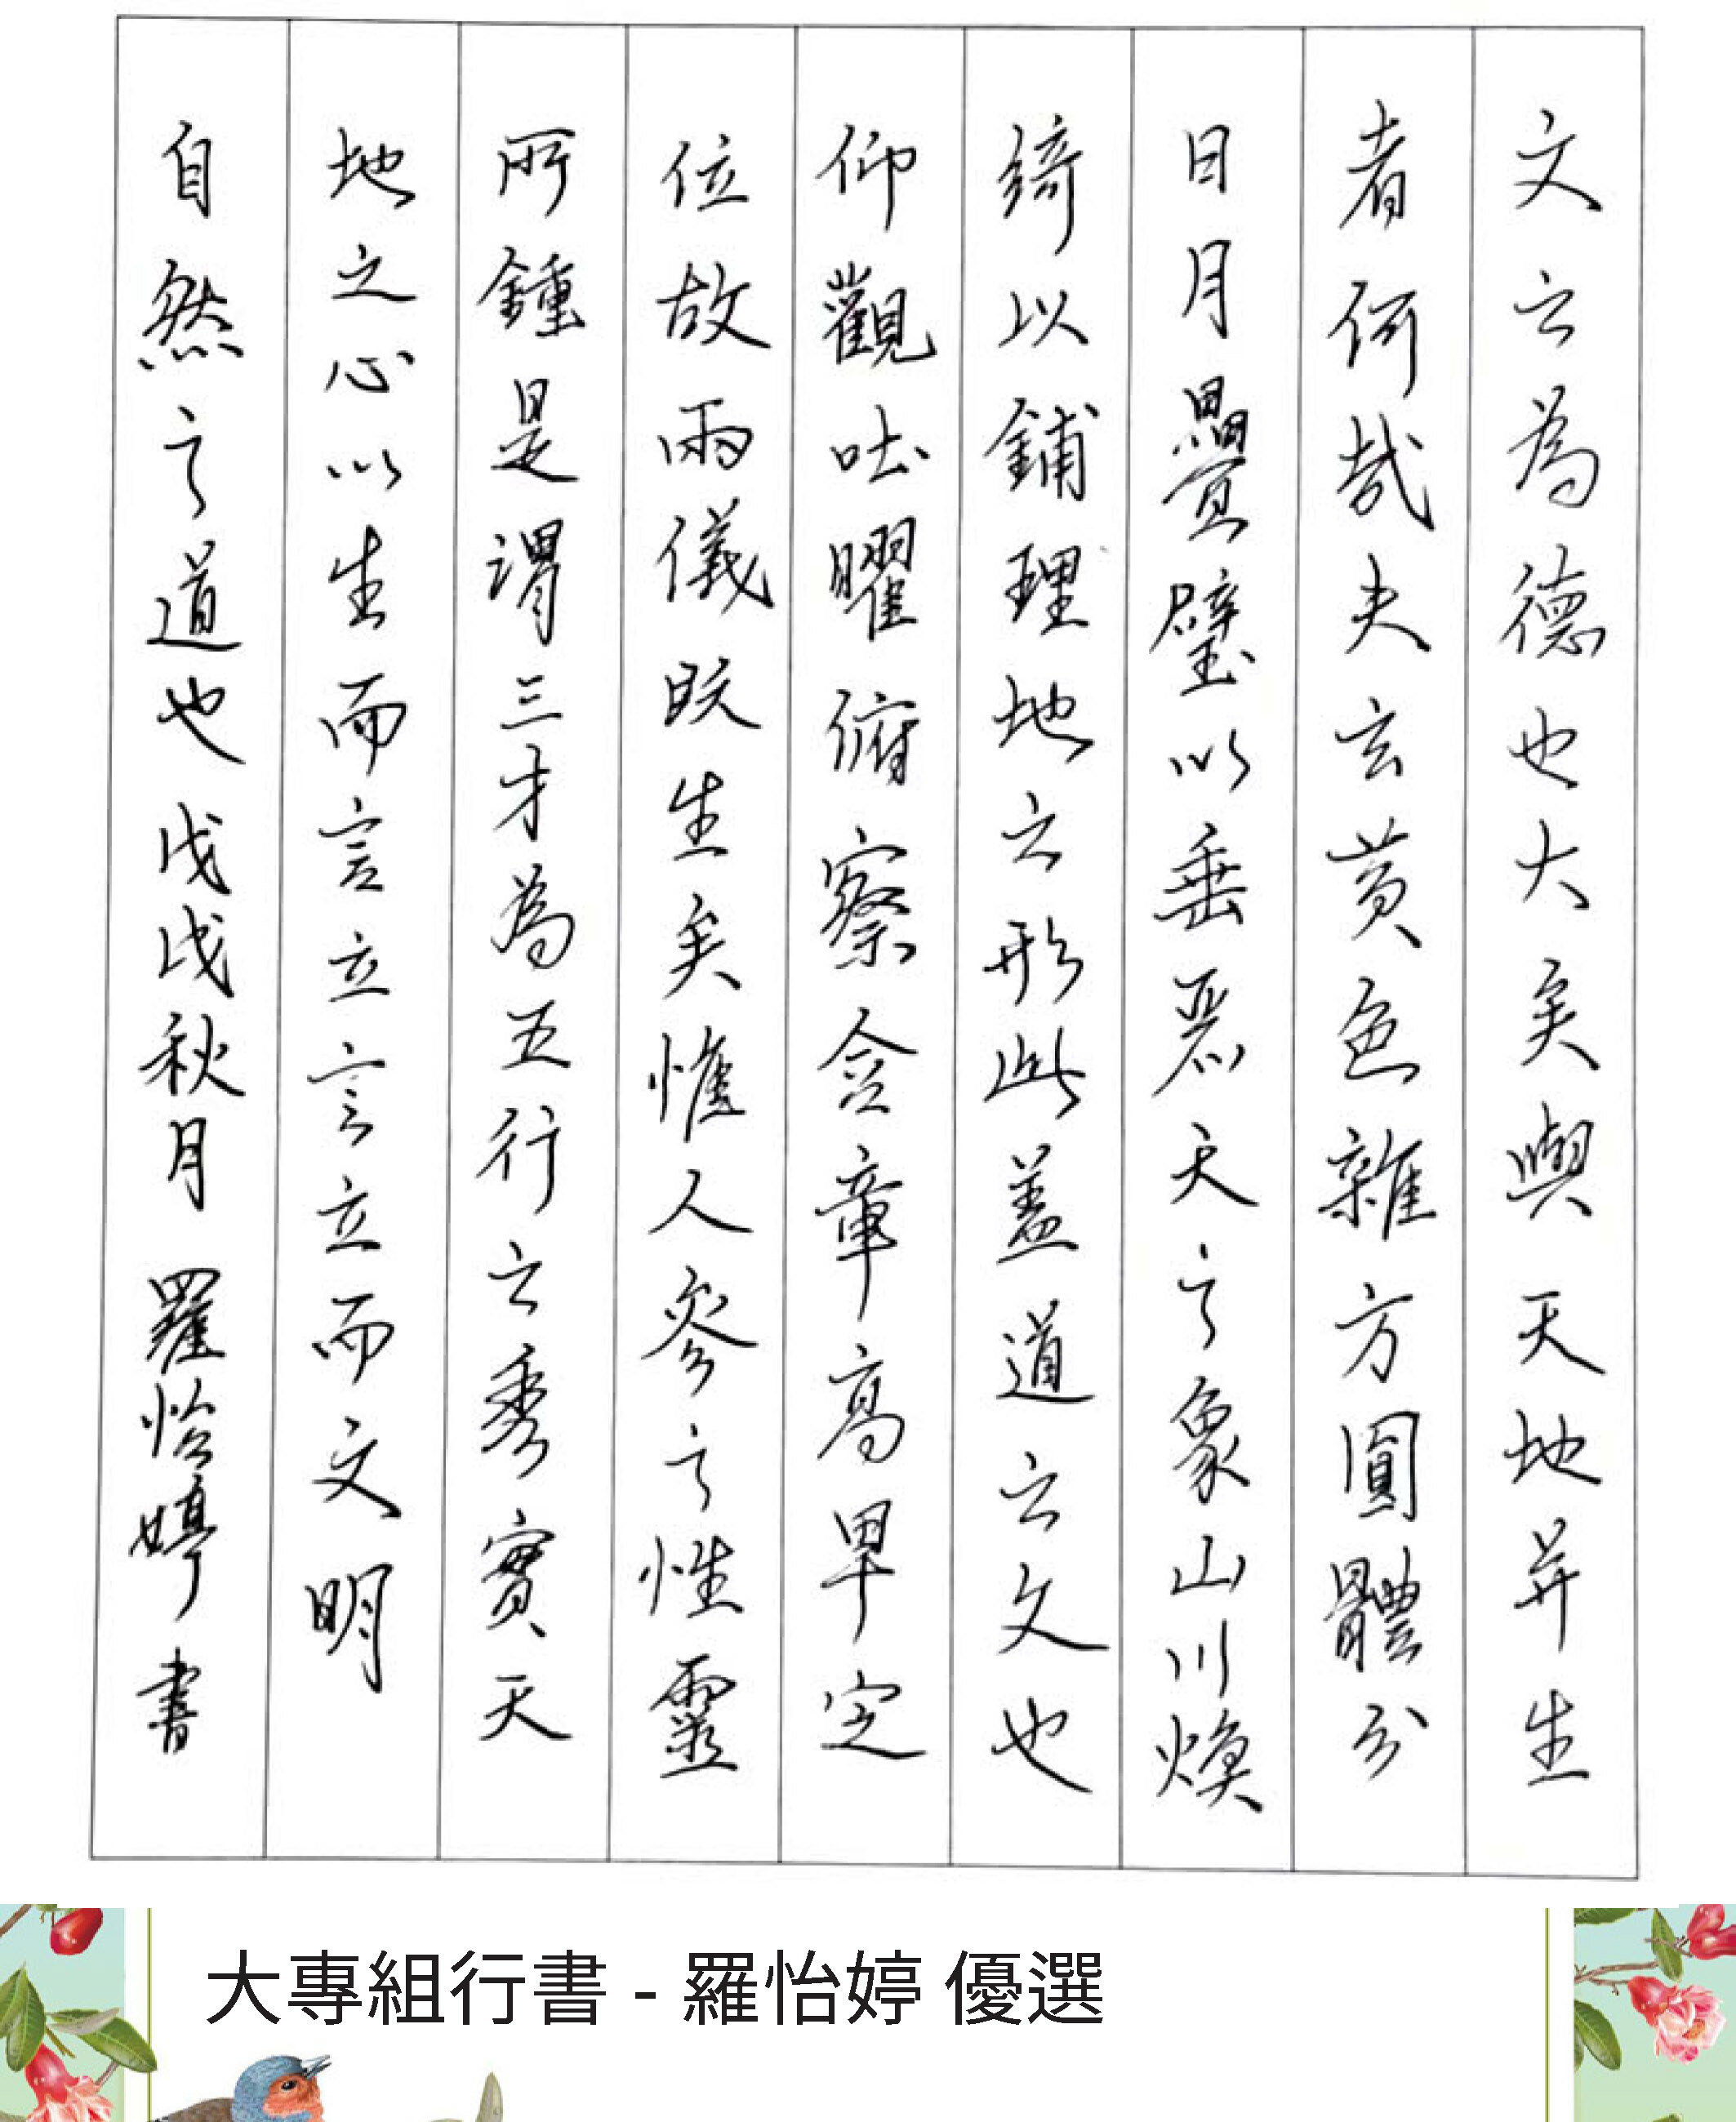 文之為德也大矣與天地并生
者何哉夫玄黃色雜方圓體分
日月疊璧以垂麗天之象山川煥
綺以鋪理地之形此蓋道之文也
仰觀吐曜俯察含章高卑定
位故兩儀既生矣惟人參之性靈
所鍾是謂三才為五行之秀實天
地之心以生而言立言立而文明
自然之道也戊戌秋月 羅怡婷書
大專組行書 - 羅怡婷 優選